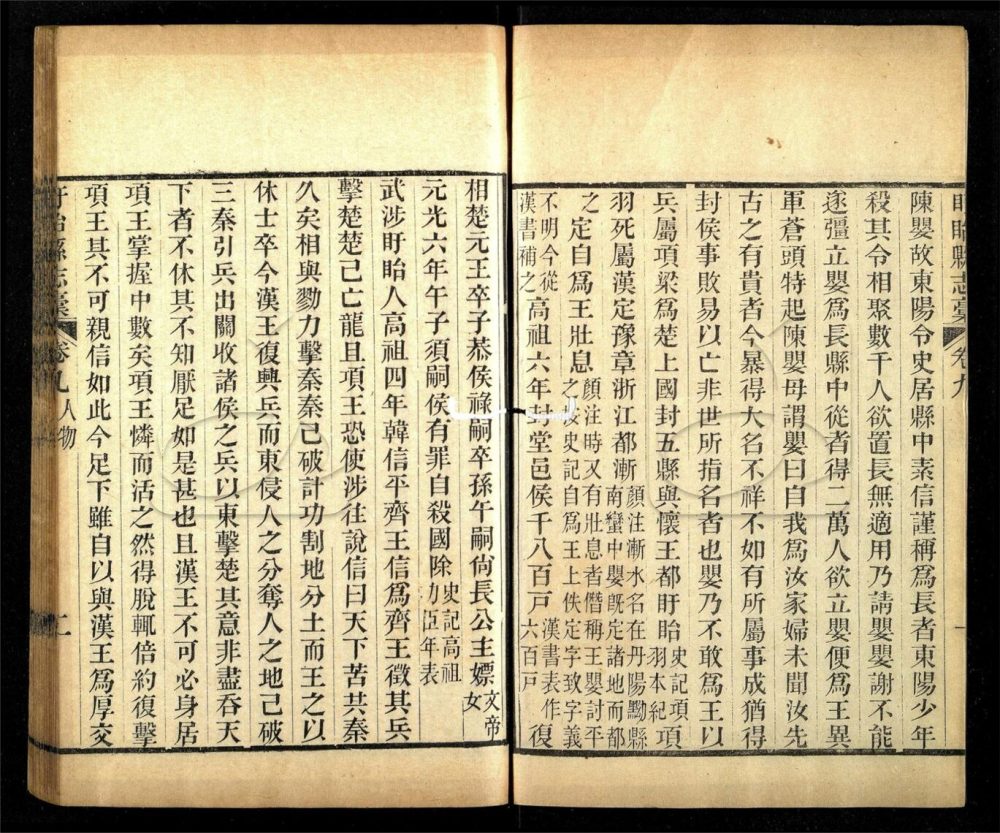 盱眙縣志稾 卷九 一
陳嬰故東陽令史居縣中素信謹稱爲長者東陽少年
殺其令相聚數千人欲置長無適用乃請嬰嬰謝不能
遂彊立嬰爲長縣中從者得二萬人欲立嬰便爲王異
軍蒼頭特起陳嬰母謂嬰曰自我爲汝家婦未聞汝先
古之有貴者今暴得大名不祥不如有所屬事成猶得
封侯事敗易以亡非世所指名者也嬰乃不敢爲王以
兵屬項梁爲楚上國封五縣與懷王都盱眙史記項羽本紀項
羽死屬漢定豫章浙江都漸顏注漸水名在丹陽黝縣南蠻中嬰旣定諸地而都
之定自爲王壯息顏注時又有壯息者僭稱王嬰討平之按史記自爲王上佚定字致字義
不明今從漢書補之高祖六年封堂邑侯千八百戶漢書表作六百戶復
相楚元王卒子恭侯祿嗣卒孫午嗣尙長公主嫖文帝女
元光六年午子須嗣侯有罪自殺國除史記高祖功臣年表
武涉盱眙人高祖四年韓信平齊王信爲齊王徵其兵
擊楚楚已亡龍且項王恐使涉往說信曰天下苦共秦
久矣相與勠力擊秦秦已破計功割地分土而王之以
休士卒今漢王復興兵而東侵人之分奪人之地已破
三秦引兵出關收諸侯之兵以東擊楚其意非盡吞天
下者不休其不知厭足如是甚也且漢王不可必身居
項王掌握中數矣項王憐而活之然得脫輒倍約復擊
項王其不可親信如此今足下雖自以與漢王爲厚交
盱眙縣志稾 卷九 人物 二